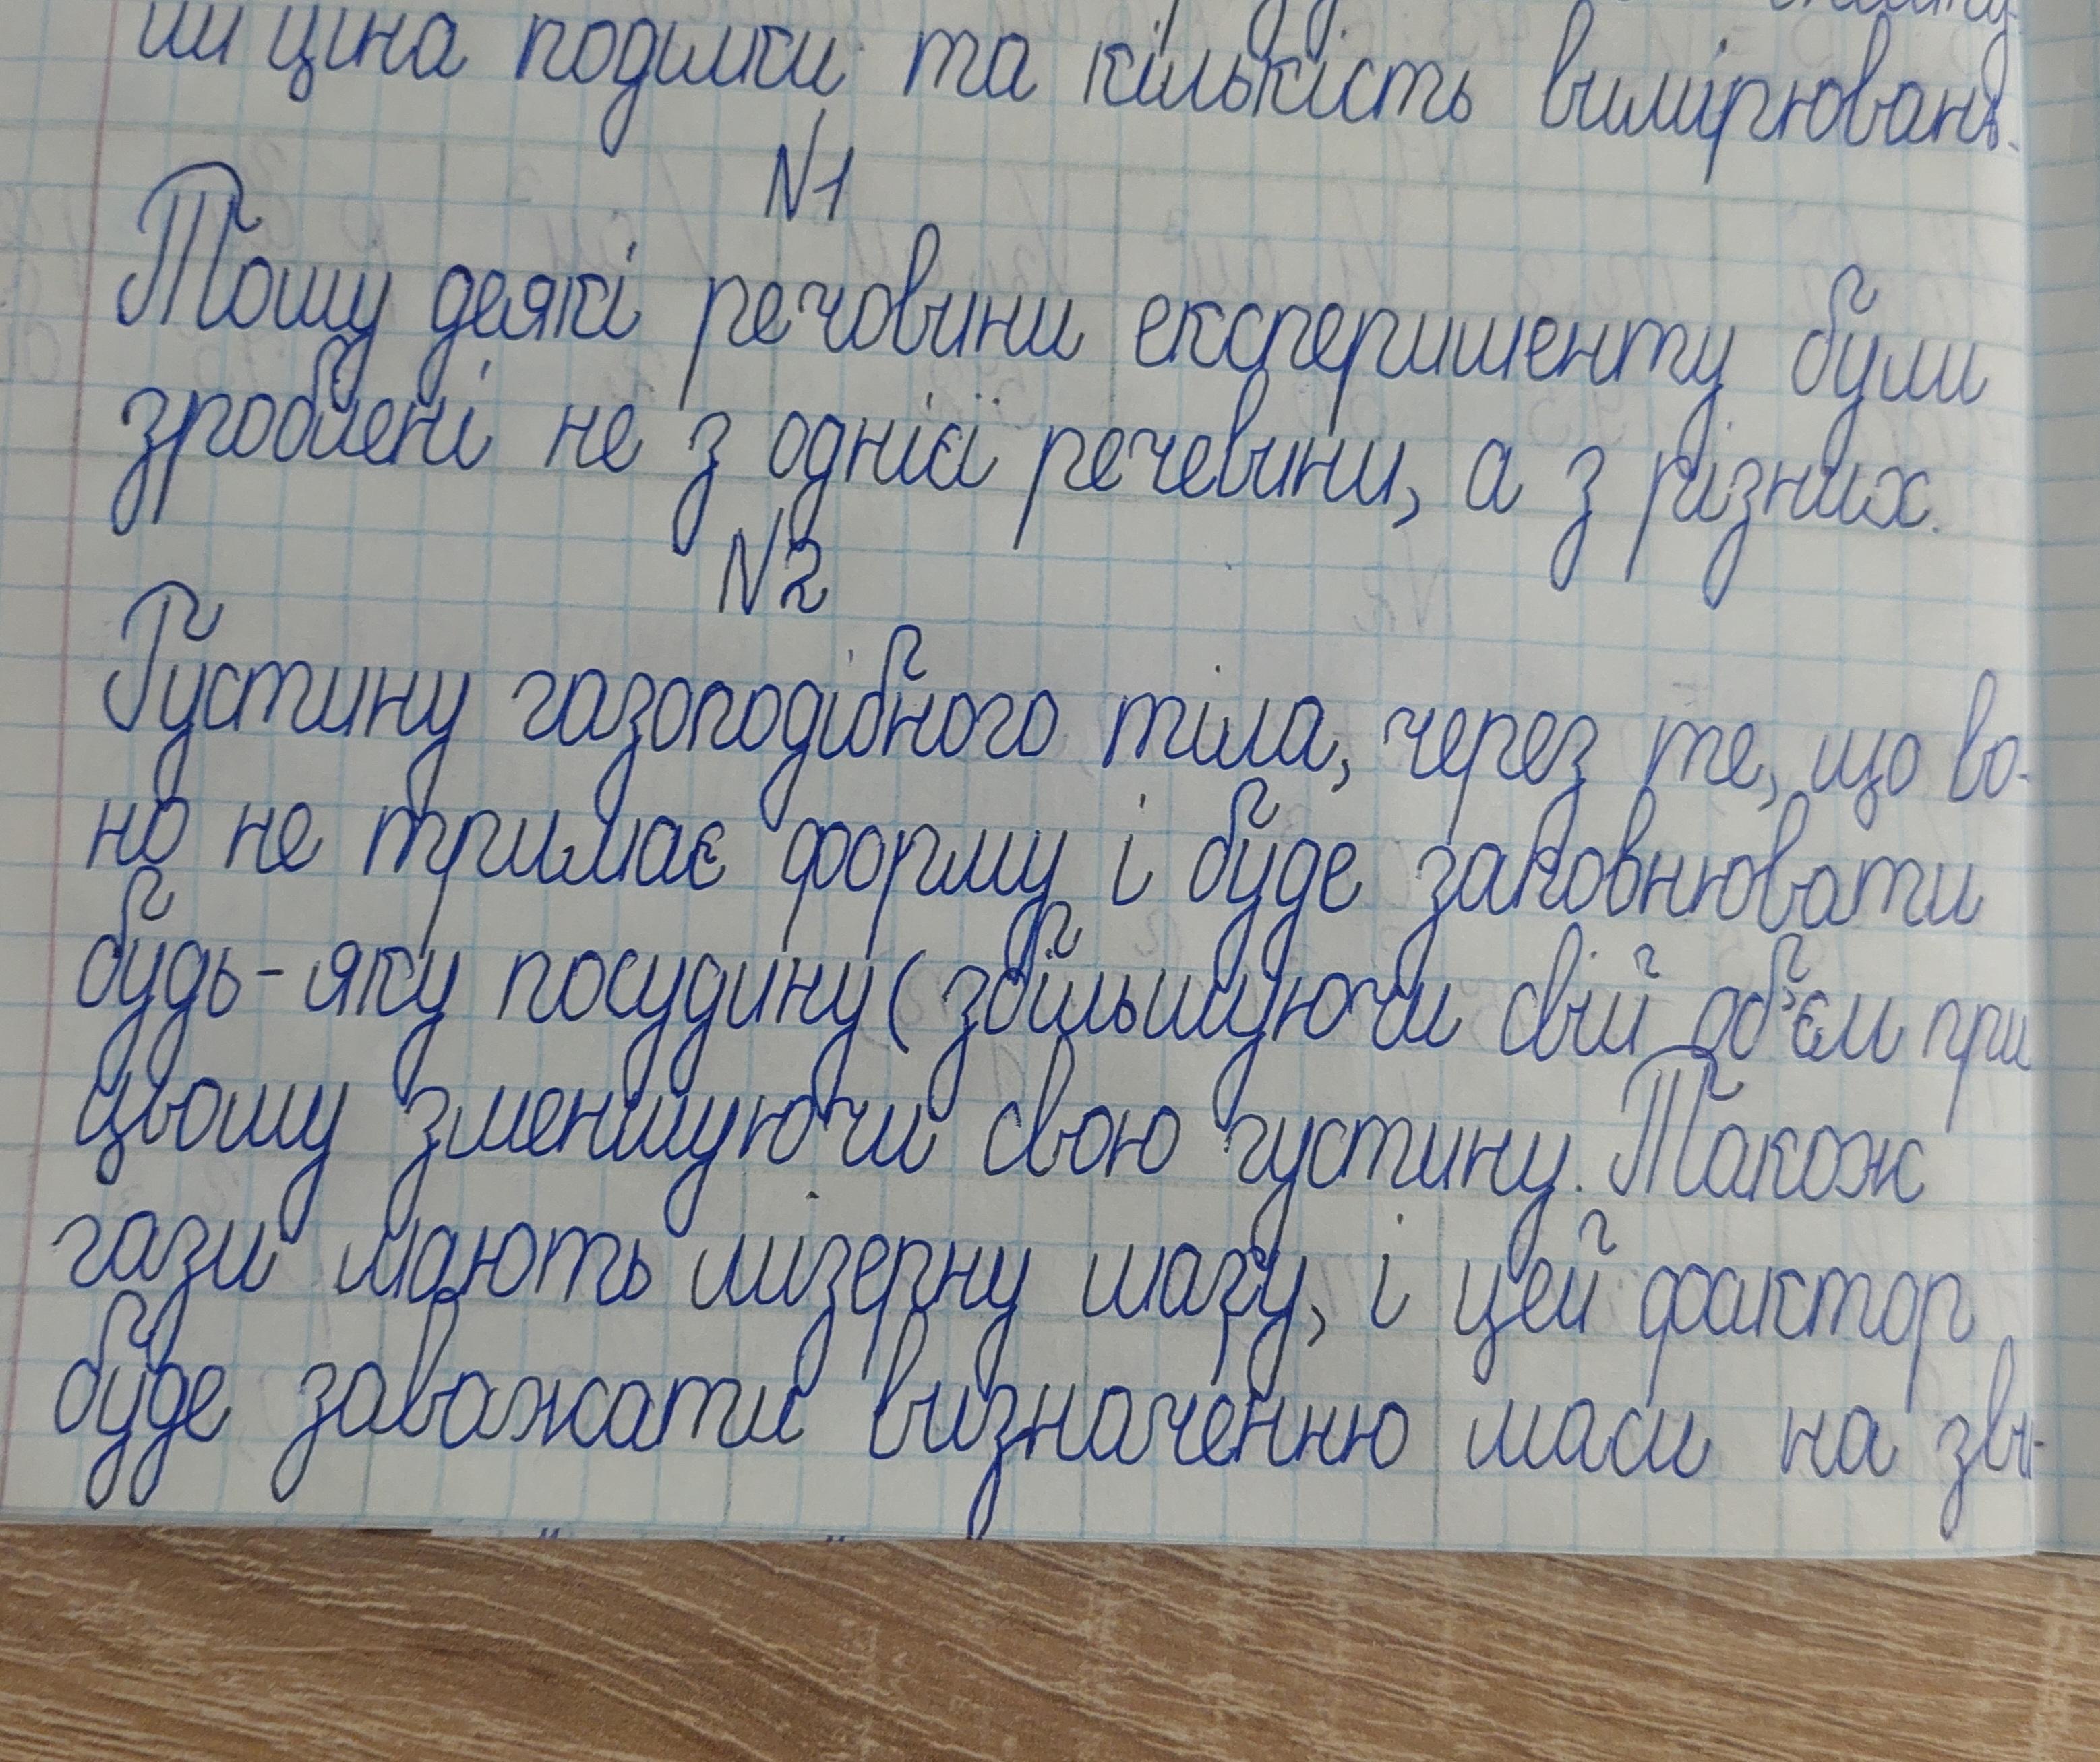 ши ціна поділки та кількість вимірювань.
N1
Тому деякі речовини експерименту були
зроблені не з однієї речевини, а з різних.
N2
Густину газоподібного тіла, через те, що во-
но не тримає форму і буде заповнювати
будь-яку посудину (збільшуючи свій об'єм при
цьому зменшуючи свою густину. Також
гази мають мізерну шагу, і цей фактор
буде заважати визначенню маси на зви-